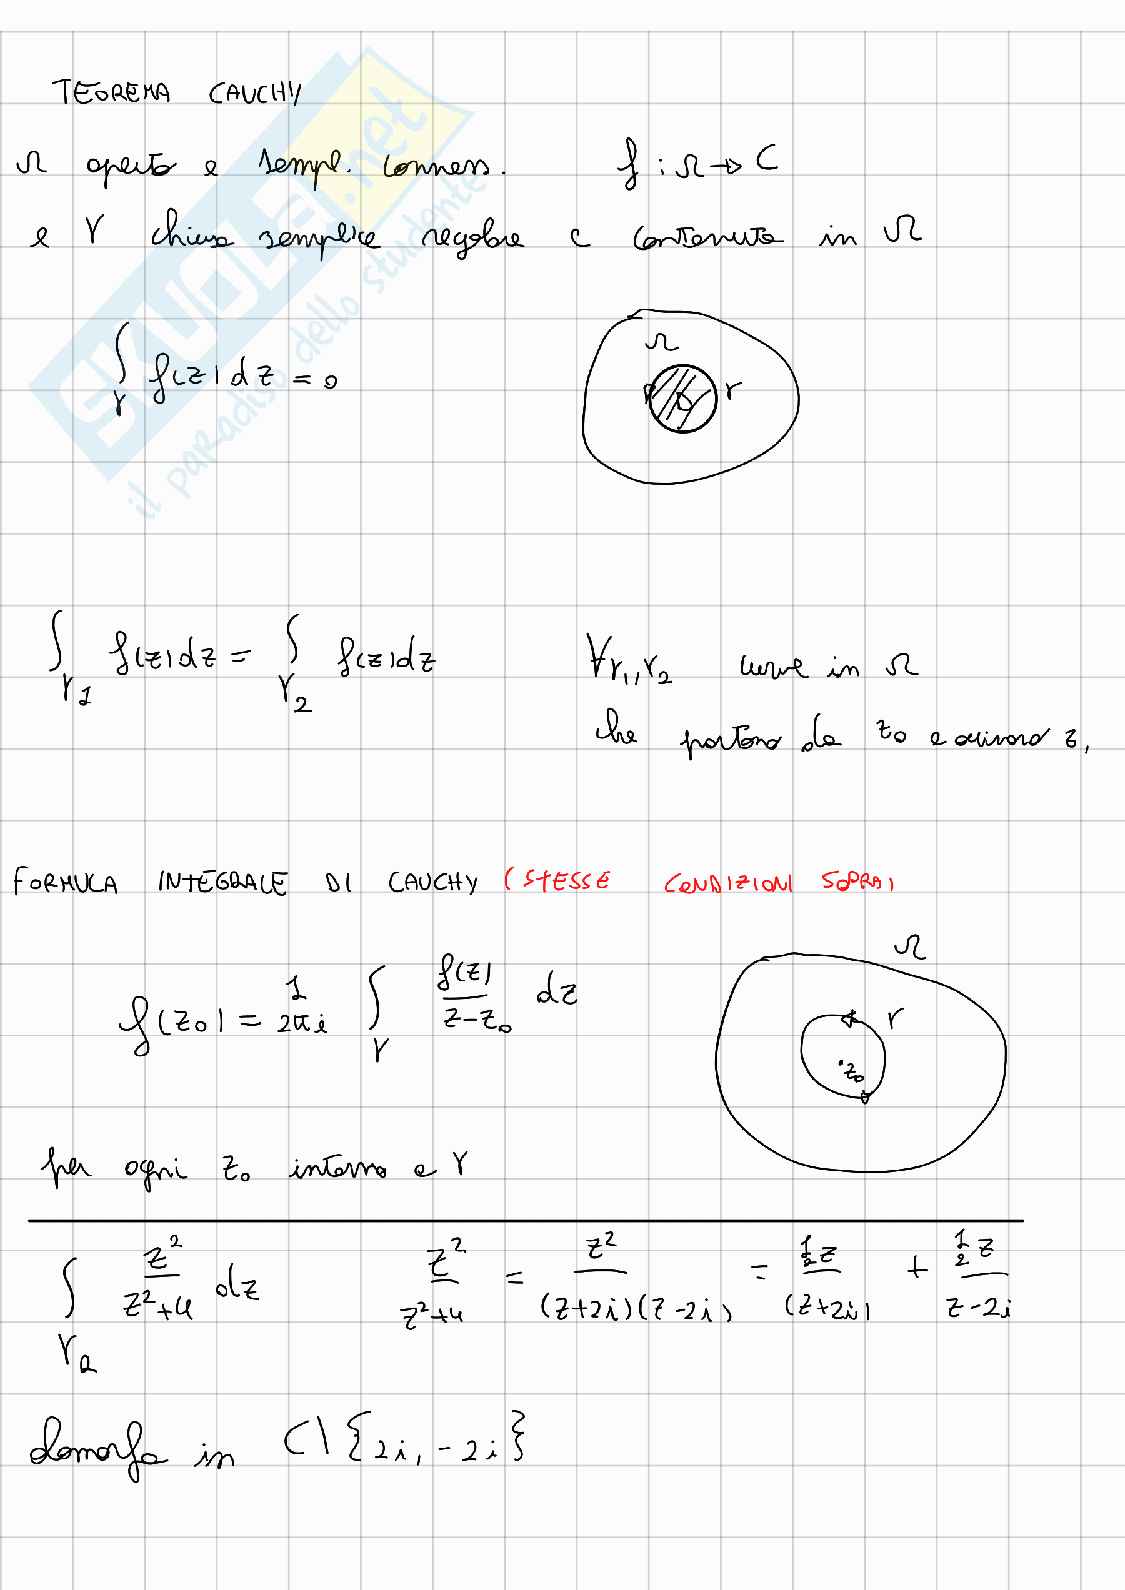 TEOREMA CAUCHY
Ω aperto e sempl. conness. f : Ω → C
e γ chiusa semplice regolare e contenuta in Ω
∫_γ f(z) dz = 0
Ω
γ
∫_γ1 f(z) dz = ∫_γ2 f(z) dz ∀ γ1, γ2 curve in Ω
che partono da z0 e arrivano z1
FORMULA INTEGRALE DI CAUCHY (STESSE CONDIZIONI SOPRA)
Ω
f(z0) = 1/2πi ∫_γ f(z)/z-z0 dz
γ
z0
per ogni z0 interno a γ
∫_γ2 z²/z²+4 dz z²/z²+4 = z²/(z+2i)(z-2i) = ½z/(z+2i) + ½z/z-2i
olomorfa in C\{2i, -2i}
SKUOLA.net
il paradiso dello studente